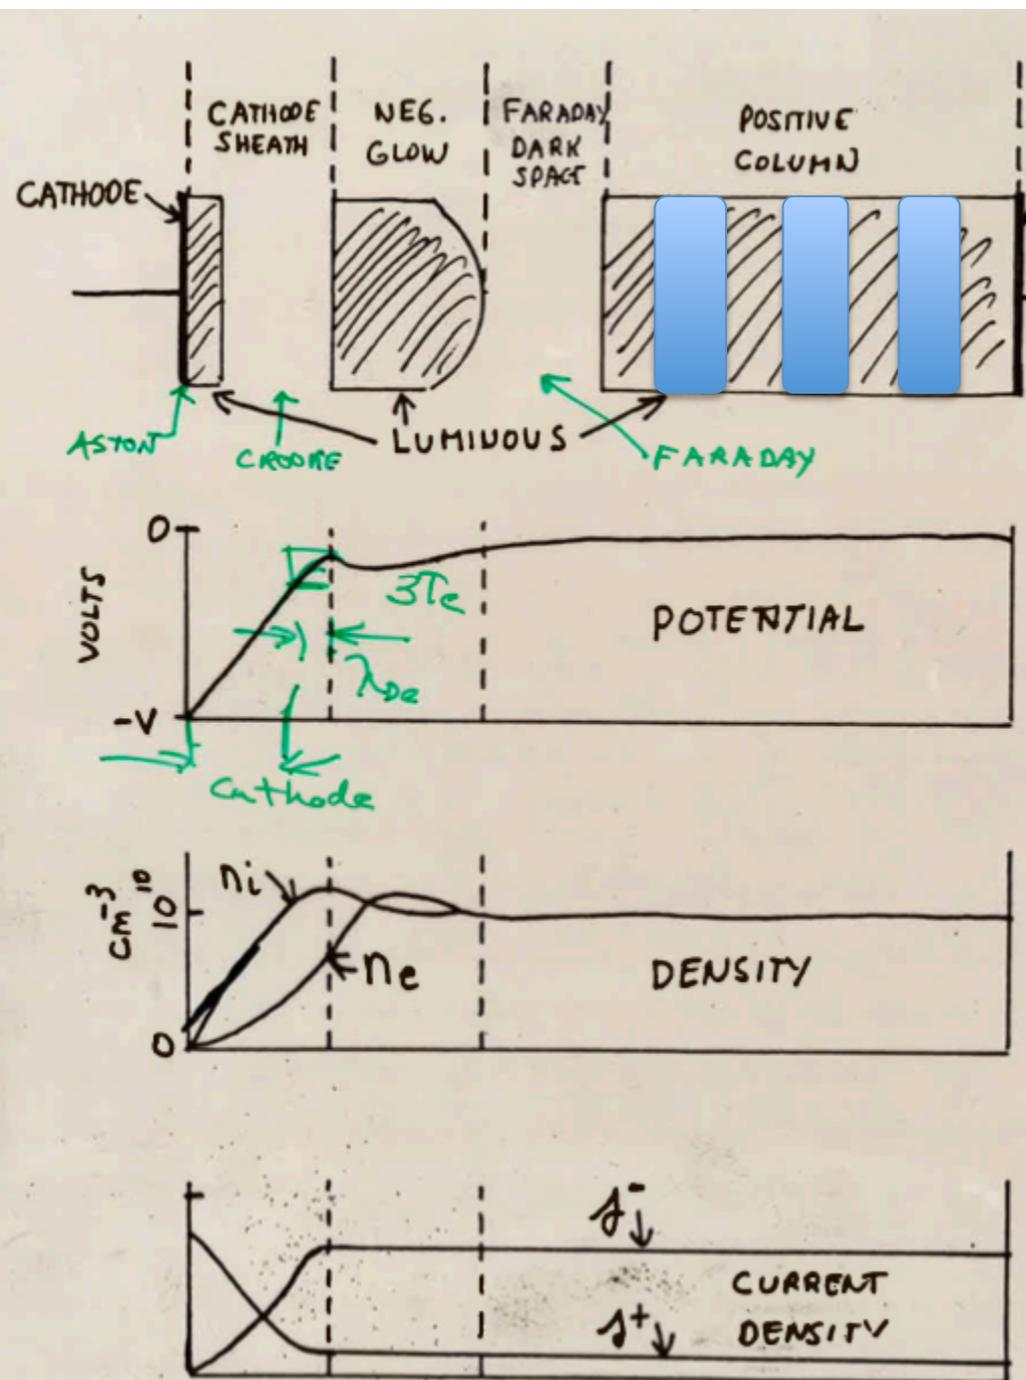 CATHODE
SHEATH
NEG.
GLOW
FARADAY
DARK
SPACE
POSITIVE
COLUMN
CATHODE
ASTON
CROOKE
LUMINOUS
FARADAY
0
VOLTS
-V
3Te
λDe
POTENTIAL
Cathode
cm⁻³
10¹⁰
0
ni
ne
DENSITY
J⁻
CURRENT
DENSITY
J⁺